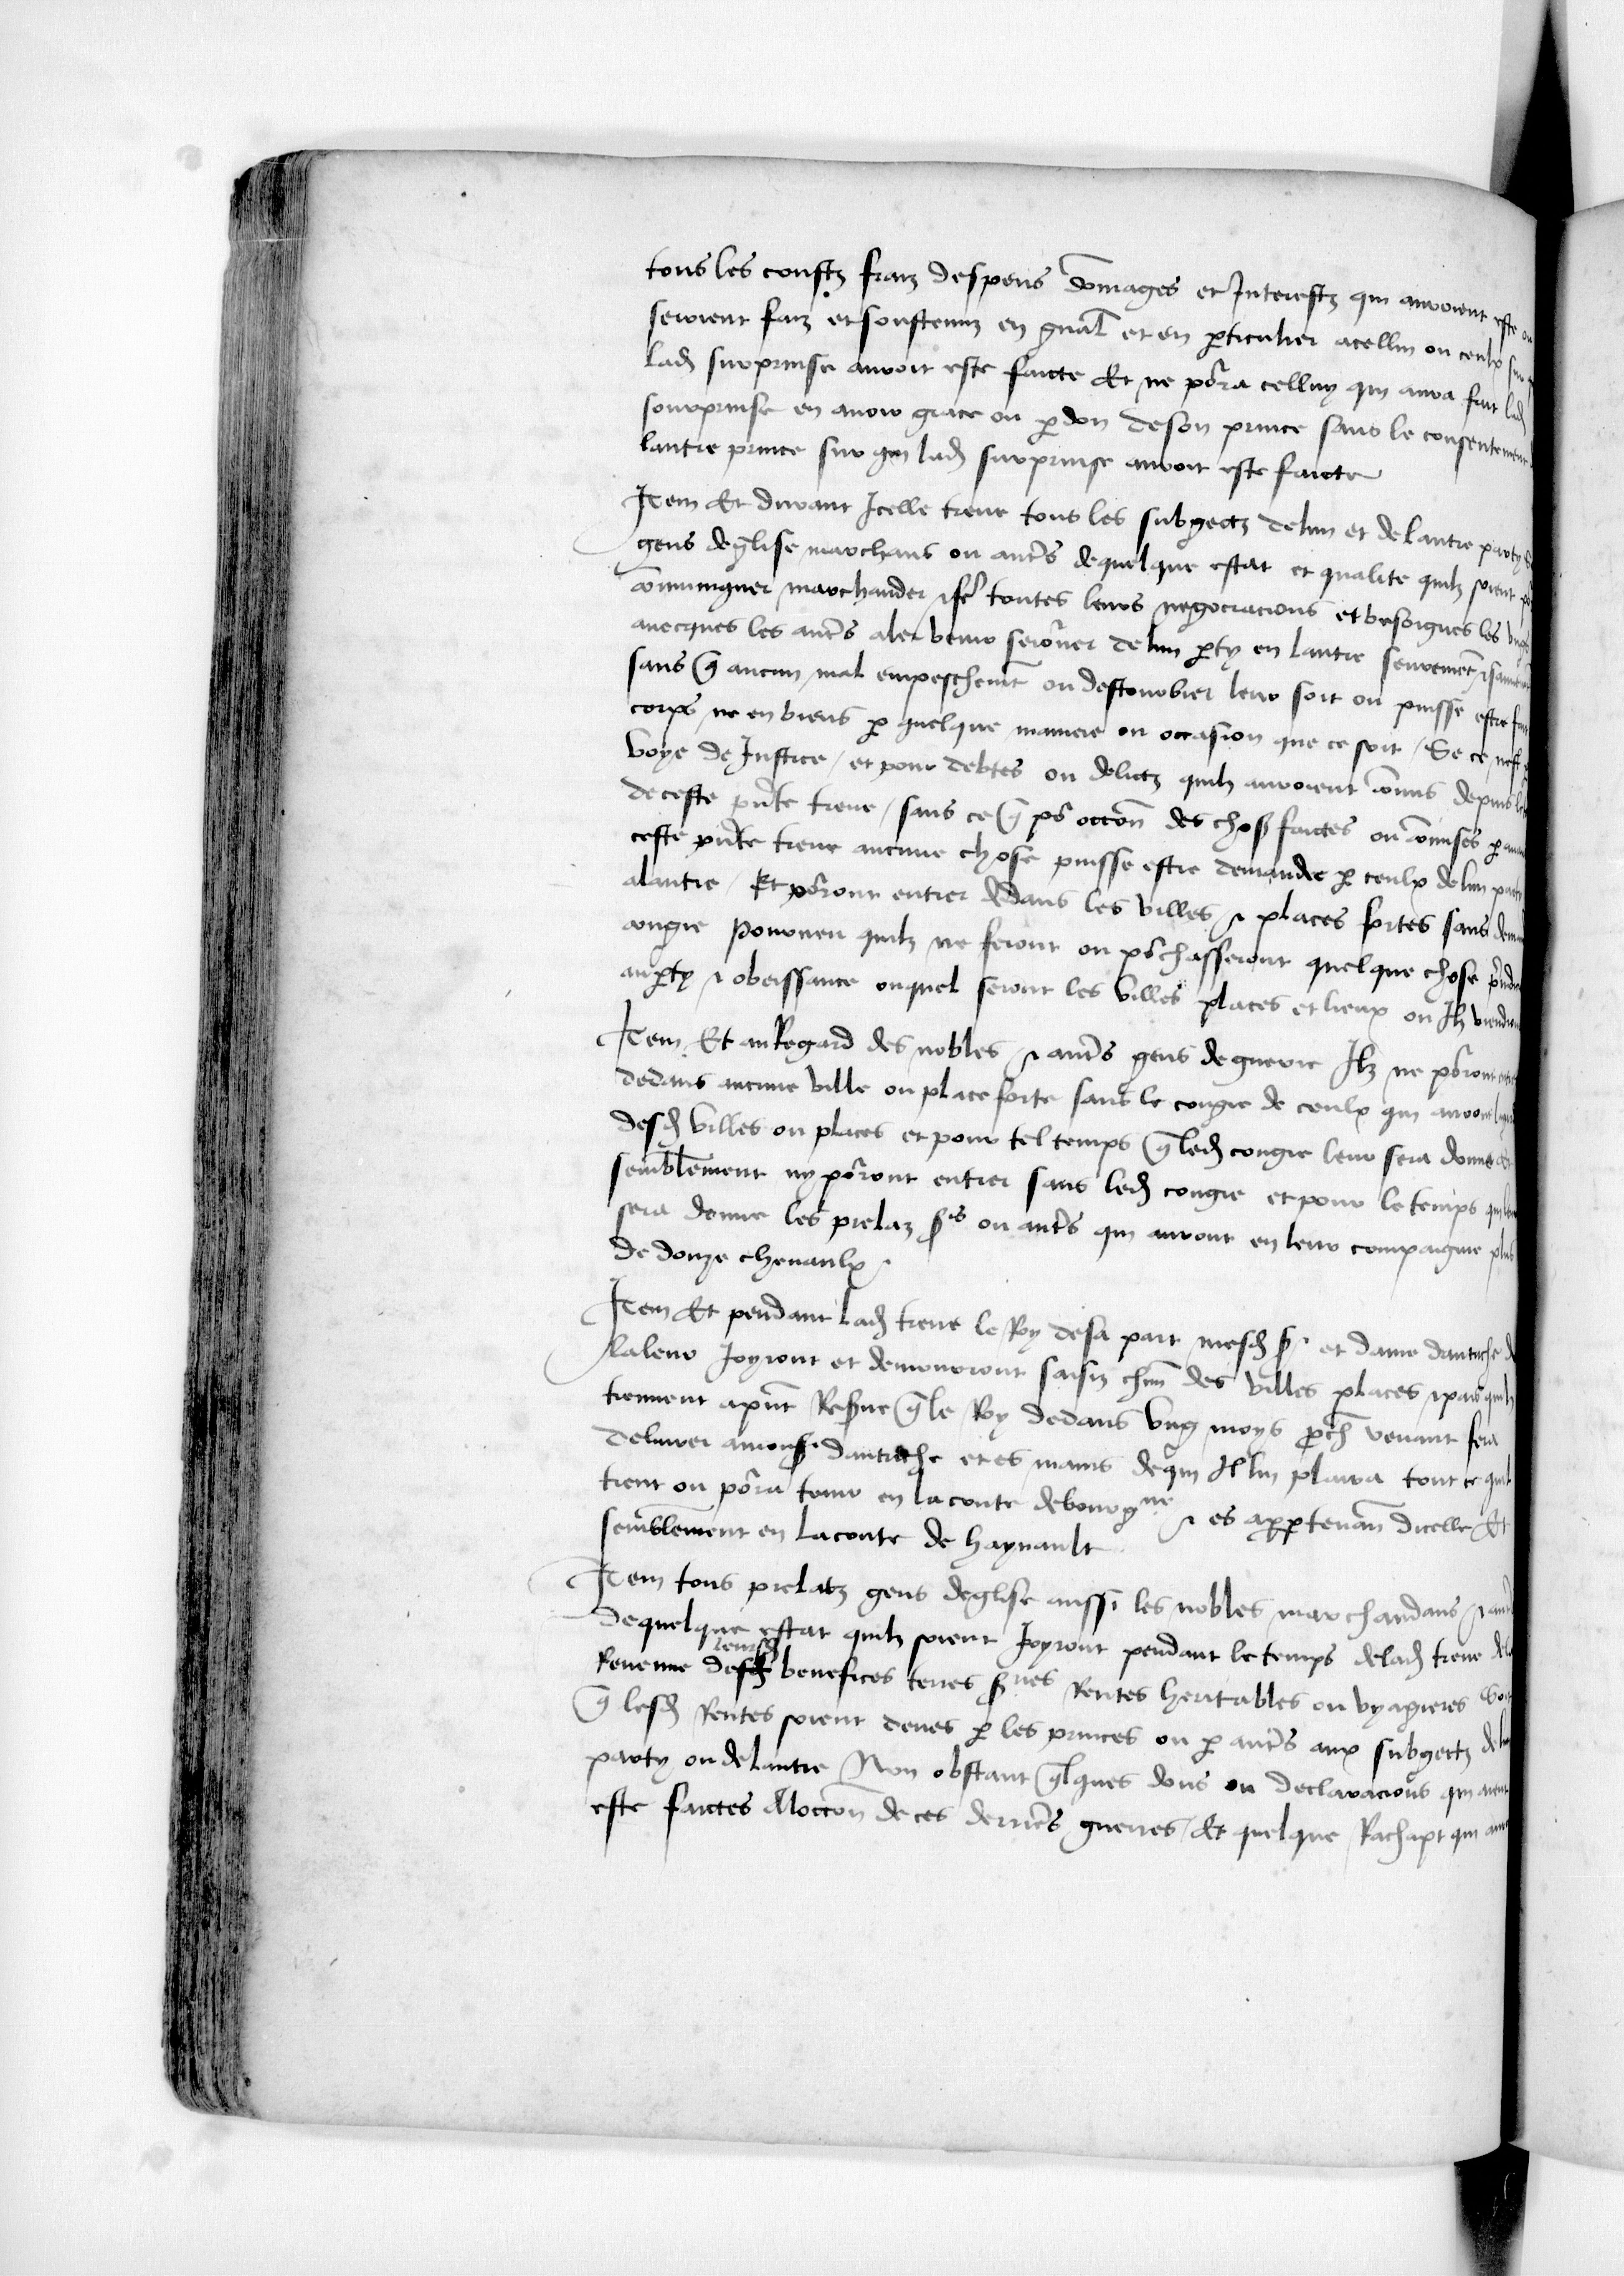 tous les coustz fraiz despens dōmages et Interestz qui auroient este ou
seroient faiz et soustenuz en gnāl et en pticulier acelluy ou ceulx sur q
lad surprinse auroit este faicte Et ne pōra celluy qui aura fait lad
sourprinse en auoir grace ou pdon de son prince sans le consentement
lautre prince sur qui lad surprinse auroit este faicte
Item Et durant Icelle treue tous les subgectz delun et de lautre party
gens deglise marchans ou autrs dequelque estat et qualite quilz soient
cōmuniquer marchander & fe toutes leurs negociacions et besoignes les vngs
auecques les autrs aler venir seiōrner de lun pty en lautre seuremēt &
sans q aucun mal empeschemt ou destourbier leur soit ou puisse estre fait
corps ne en biens p quelque maniere ou occasion que ce soit / Se ce nest
voye de Justice / et pour debtes ou delictz quilz auroient cōmis depuis
de ceste pnte treue / sans ce q pō occōn des choses faictes ou cōmises p auant
ceste pnte treue aucune chose puisse estre demandee p ceulx de lun party
alautre / Et pōront entrer dedans les villes & places fortes sans
congie Pourueu quilz ne feront ou pōchasseront quelque chose
au pty & obeissance ouquel seront les villes places et lieux ou Ilz viendront
Item Et au Regard des nobles & autrs gens de guerre Ilz ne pōront
dedans aucune ville ou place forte sans le congie de ceulx qui auront
desd villes ou places et pour tel temps q led congie leur sera donne et
semblement ny pōront entrer sans led congie et pour le temps qui leur
sera donne les prelaz srs ou autrs qui auront en leur compaignie plus
de douze cheuaulx
Item Et pendant lad treue le Roy desa part mesd sr et dame dautriche
la leur Joyront et demoureront saisiz chūn des villes places & pais quilz
tiennent apnt Reserue q le Roy dedans vng moys proch venant fera
deliurer amonsr dautriche et es mains dequi Il luy plaira tout ce quil
tient ou pōra tenir en la conte de bourgne & es apptenan dicelle Et
semblement en la conte de haynault
Item tous prelatz gens deglise aussi les nobles marchandans &
dequelque estat quilz soient Joyront pendant le temps delad treue
leursd
Reuenue desd benefices terres sries Rentes heritables ou vyagieres
q lesd Rentes soient deues p les princes ou p autrs aux subgectz
party ou delautre Non obstant qlques dons ou declaracions qui aient
este faictes Aloccon de ces derniers guerres / Et quelque Rachapt qui